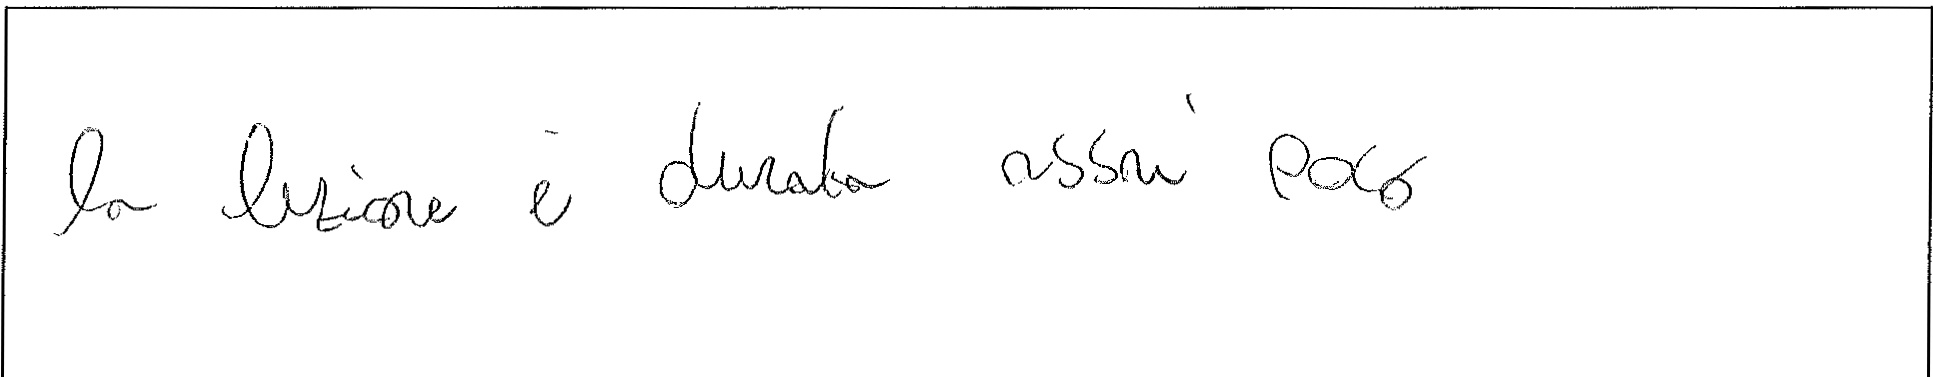 la lezione è durata assai poco